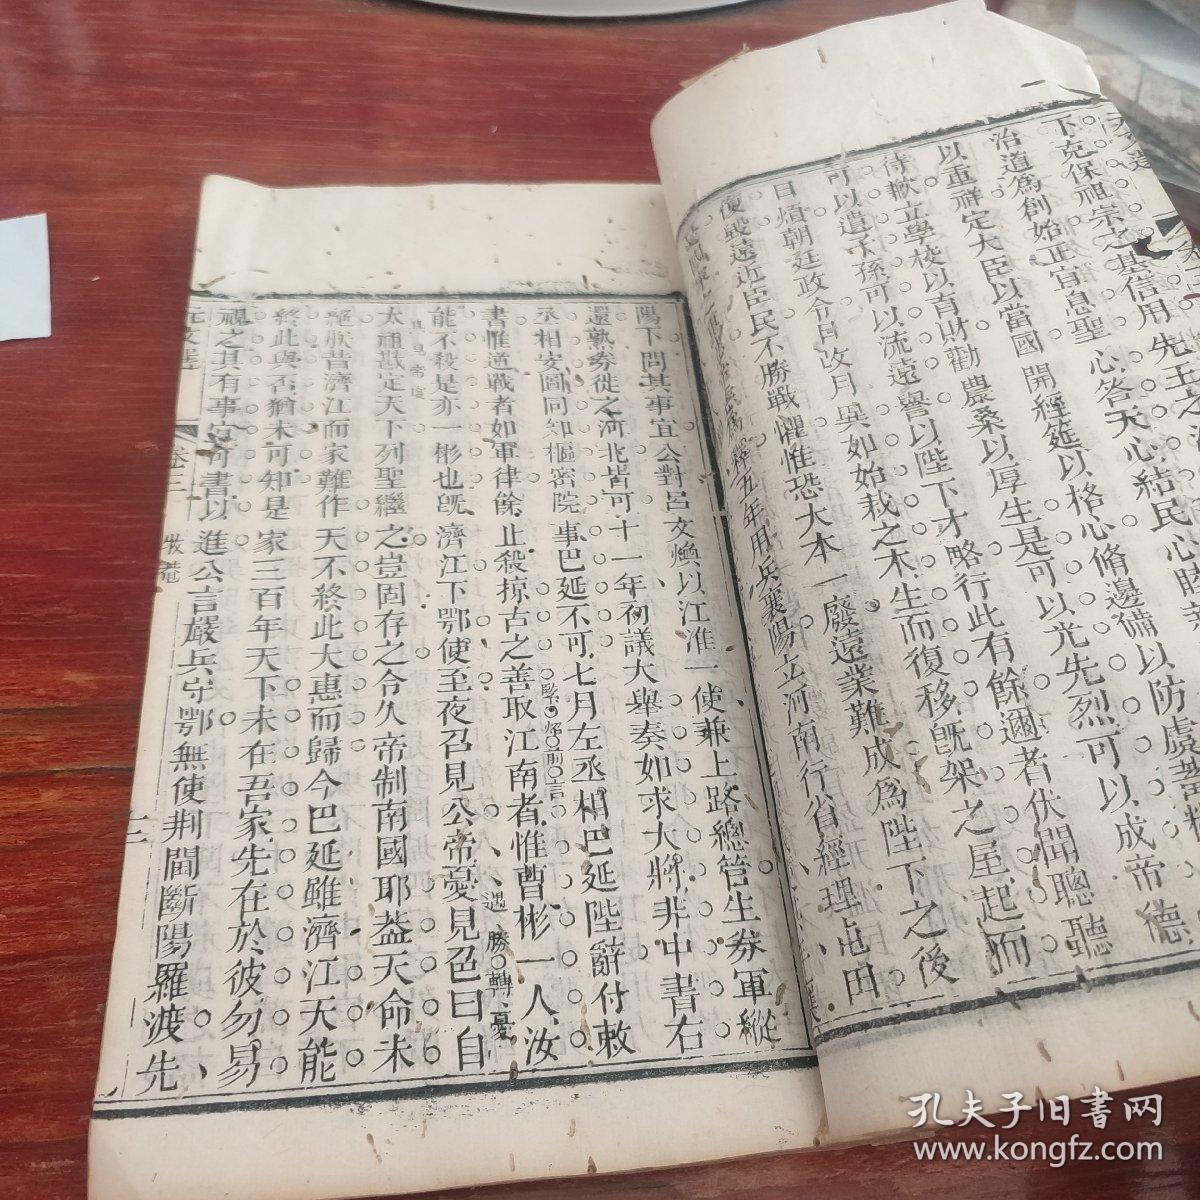 下克保祖宗之基信用先王之
治道為創始正宜息聖心答天心結民心
以重祥定大臣以當國開經筵以格心脩邊備以防虞蓄
待歉立學校以育財勸農桑以厚生是可以光先烈可以成帝德
可以遺子孫可以流遠譽以陛下才略行此有餘邇者伏聞聰聽
日煩朝廷政令日改月異如始栽之木生而復移既架之屋起而
復毀遠近臣民不勝戰懼惟恐大本一廢遠業難成為陛下之後
釋五年用兵襄陽立河南行省經理屯田
陽下問其事宜公對呂文煥以江淮一使兼上路總管生券軍縱
還熟券徙之河北皆可十一年初議大舉奏如求大將非中書右
丞相安圖同知樞密院事巴延不可七月左丞相巴延陛辭付敕
書惟逆戰者如軍律餘止殺掠古之善取江南者惟曹彬一人汝
能不殺是亦一彬也既濟江下鄂使至夜召見公帝憂見色曰自
太祖戡定天下列聖繼之豈固存之令久帝制南國耶蓋天命未
絕朕昔濟江而家難作天不終此大惠而歸今巴延雖濟江天能
終此與否猶未可知是家三百年天下未在吾家先在於彼勿易
視之其有事宜可書以進公言嚴兵守鄂無使荆閫斷陽羅渡先
卷三 牧菴 十二
孔夫子旧書网
www.kongfz.com